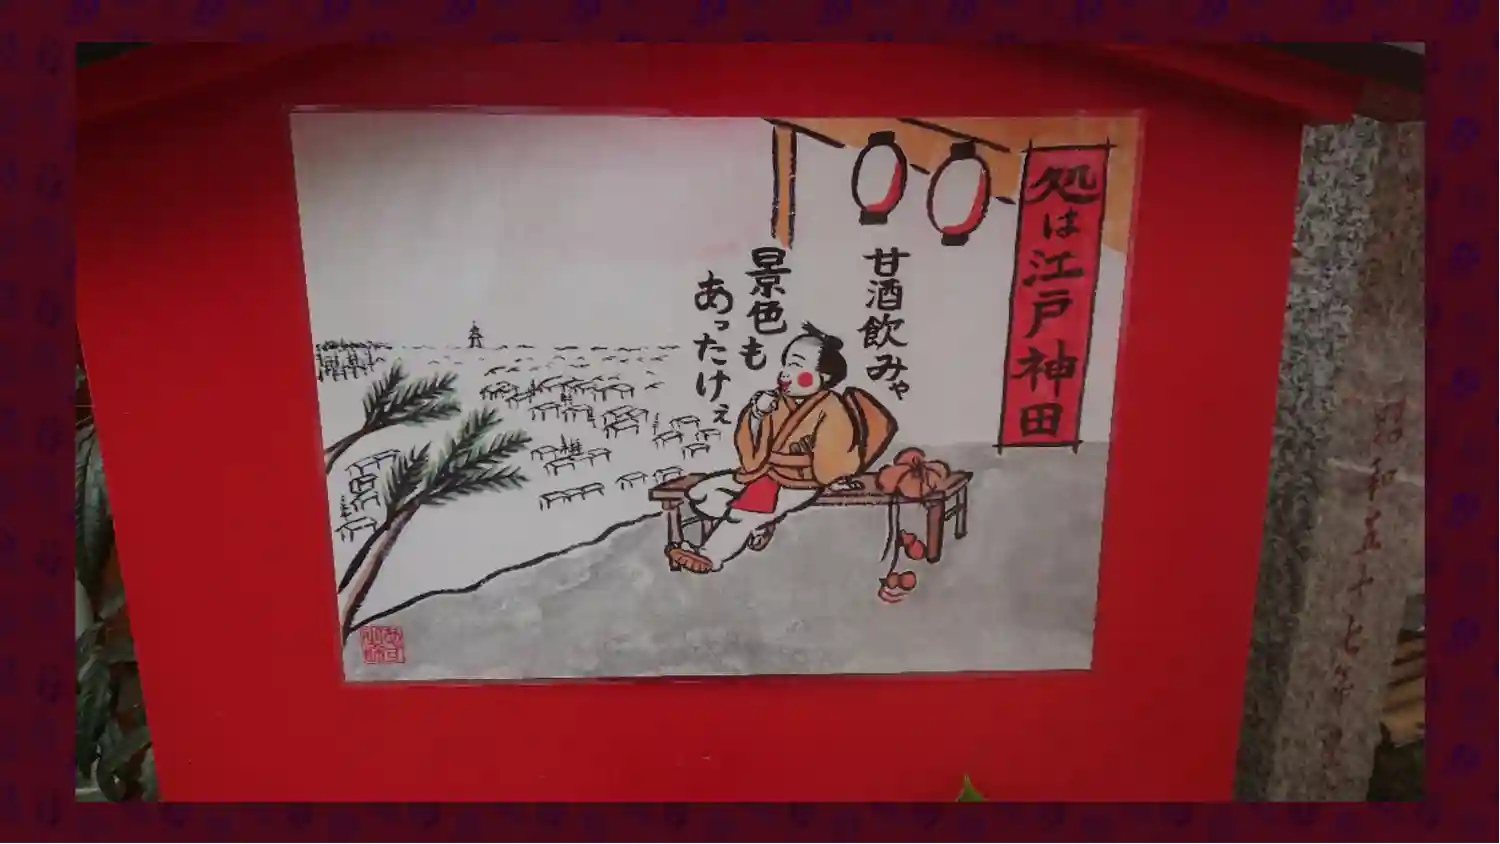 処は江戸神田
甘酒飲みゃ
景色も
あったけぇ
昭和五十七年